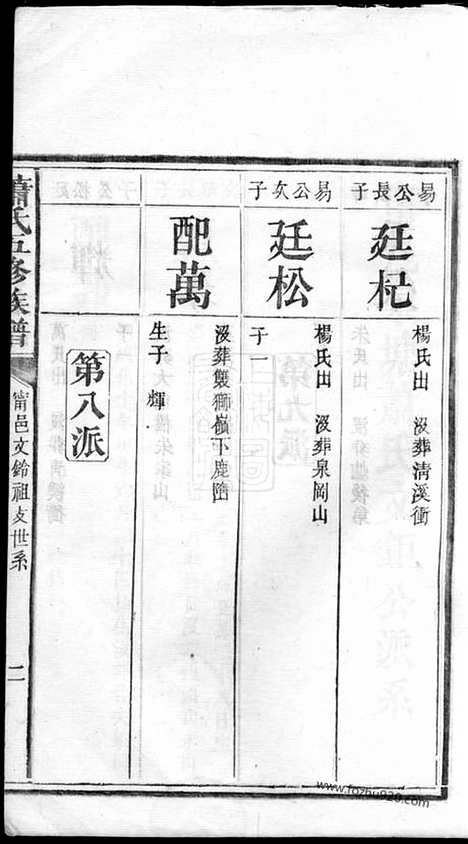 易公長子
廷杞
楊氏出 沒葬清溪衝
易公次子
廷松
楊氏出 沒葬泉岡山
子一
配萬
沒葬製獅嶺下鹿陷
生子 輝
第八派
蕭氏五修族譜
甯邑文鈴祖支世系
二
www.fozhu920.com